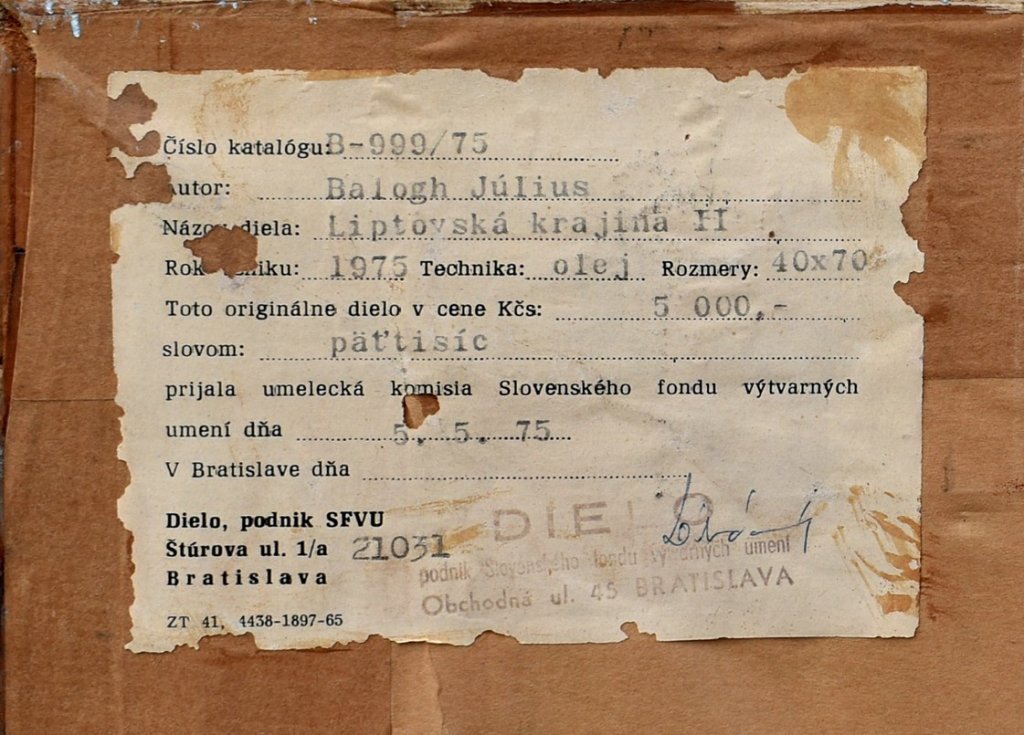 Číslo katalógu: B-999/75
Autor: Balogh Július
Názov diela: Liptovská krajina II
Rok vzniku: 1975 Technika: olej Rozmery: 40x70
Toto originálne dielo v cene Kčs: 5 000,-
slovom: päťtisíc
prijala umelecká komisia Slovenského fondu výtvarných
umení dňa 5. 5. 75
V Bratislave dňa
Dielo, podnik SFVU
Štúrova ul. 1/a 21031
Bratislava
ZT 41, 4438-1897-65
DIELO
podnik Slovenského fondu výtvarných umení
Obchodná ul. 45 BRATISLAVA